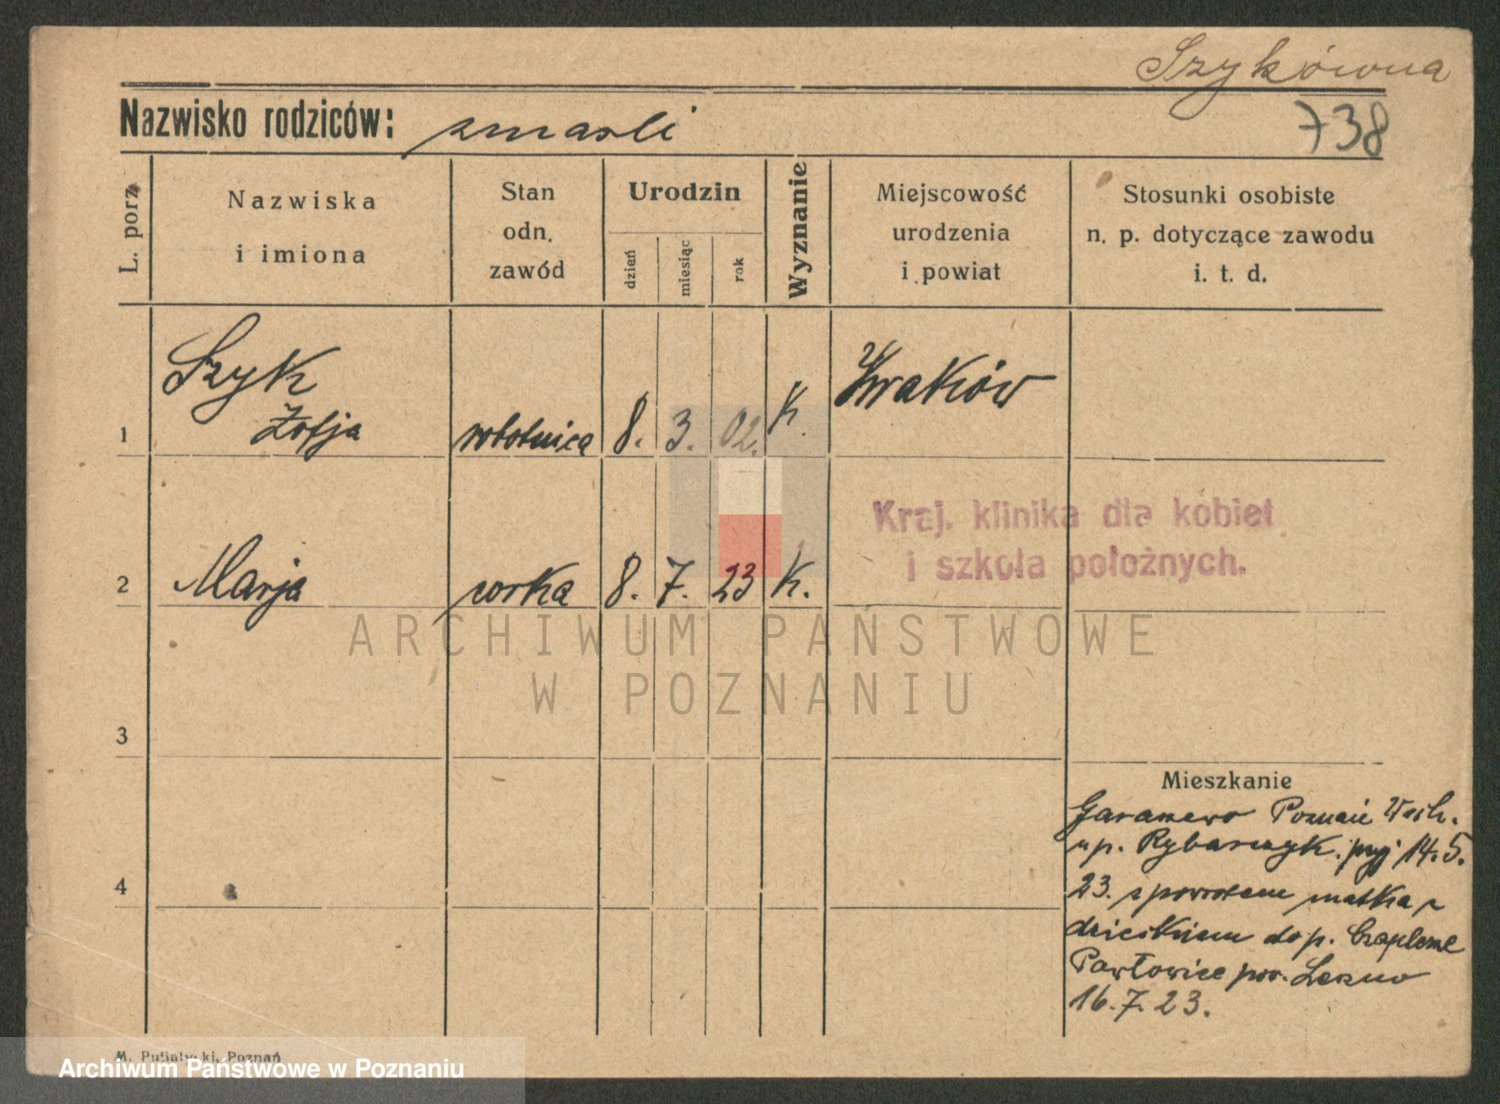 Szykówna
738
Nazwisko rodziców: zmarli
L. porz. Nazwiska i imiona Stan odn. zawód Urodzin dzień miesiąc rok Wyznanie Miejscowość urodzenia i powiat Stosunki osobiste n. p. dotyczące zawodu i. t. d.
1 Szyk Zofja robotnica 8. 3. 02. K. Kraków
Kraj. klinika dla kobiet
i szkoła położnych.
2 Marja corka 8. 7. 23 K.
ARCHIWUM PAŃSTWOWE
W POZNANIU
3
4
Mieszkanie
Poznań Wsch.
u p. Rybarczyk. przy 14.5.
23. z powrotem matka z
dzieckiem do p.
Pawłowice pow. Leszno
16.7.23.
M. Putiatycki, Poznań
Archiwum Państwowe w Poznaniu